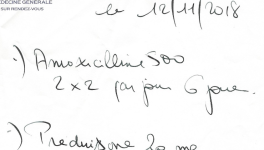 DECINE GENERALE
SUR RENDEZ-VOUS
le 12/11/2018
-) Amoxicilline 500
2 x 2 par jour 6 jours.
-) Prednisone 20 mg